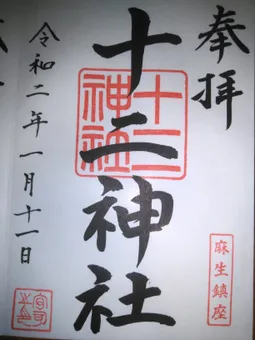 奉拝
十二神社
十二神社
麻生鎮座
令和二年一月十一日